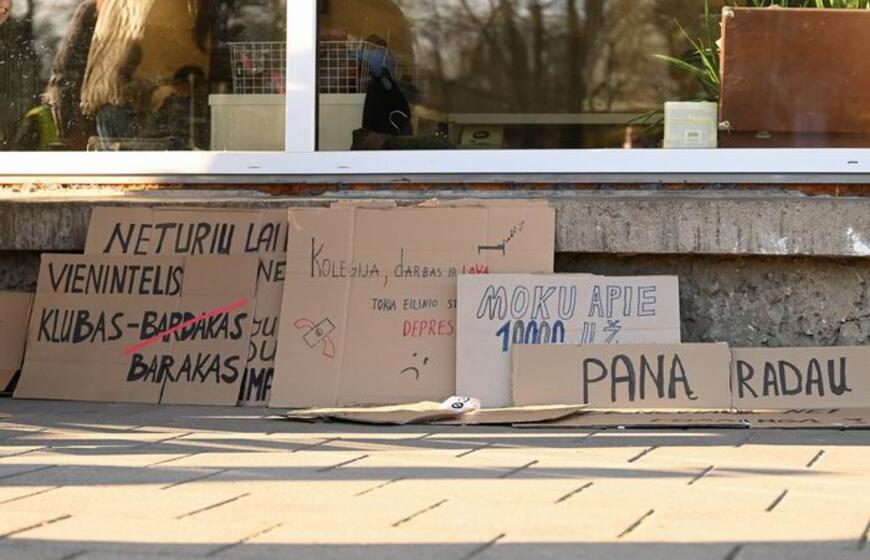 NETURIU LAI
VIENINTELIS
KLUBAS-BARDAKAS
BARAKAS
KOLEGIJA, DARBAS IR
TOKIA EILINIO
DEPRES
MOKU APIE
10000 UŽ
PANĄ
RADAU